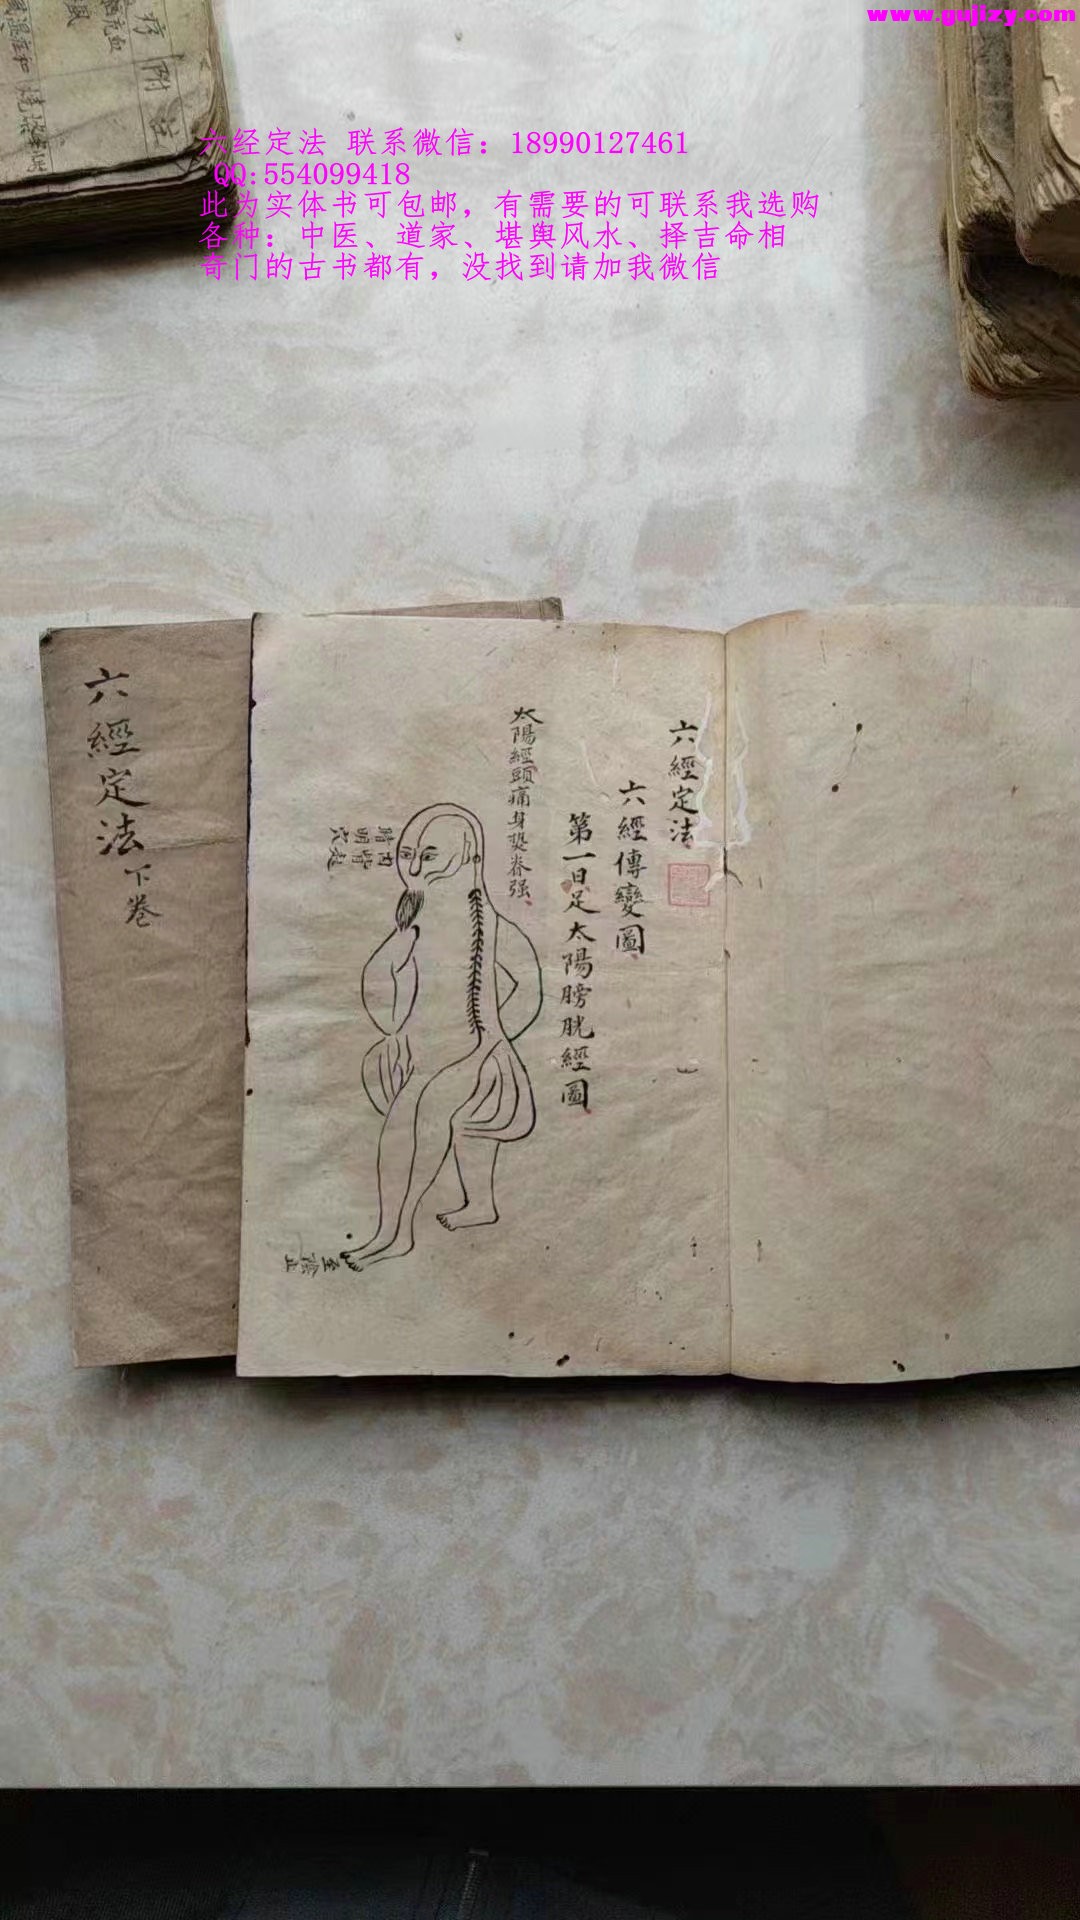 www.gujizy.com
六经定法 联系微信：18990127461
QQ:554099418
此为实体书可包邮，有需要的可联系我选购
各种：中医、道家、堪舆风水、择吉命相
奇门的古书都有，没找到请加我微信
疗 附
六經定法
六經傳變圖
第一日足太陽膀胱經圖
太陽經頭痛身熱脊强
內眥
睛明穴起
至陰止
六經定法下卷